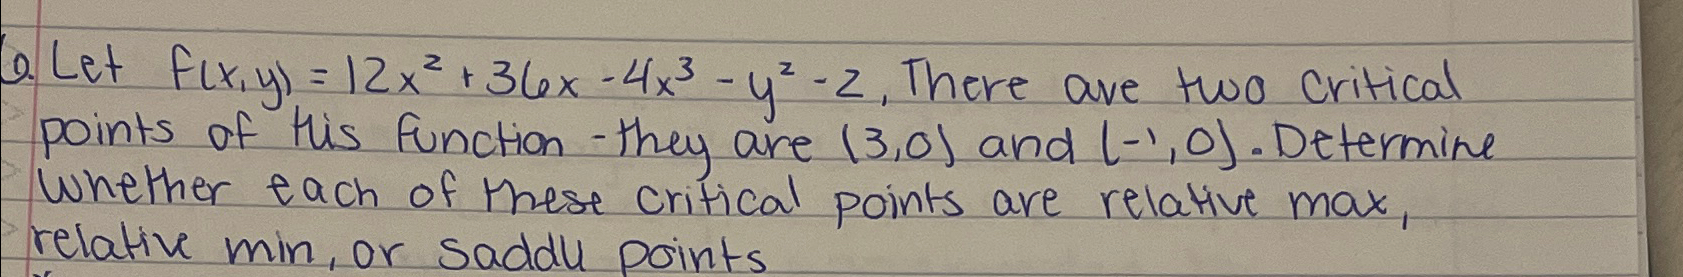 Q. Let f(x,y) = 12x² + 36x - 4x³ - y² - 2, There are two critical
points of this function - they are (3,0) and (-1,0). Determine
whether each of these critical points are relative max,
relative min, or saddle points